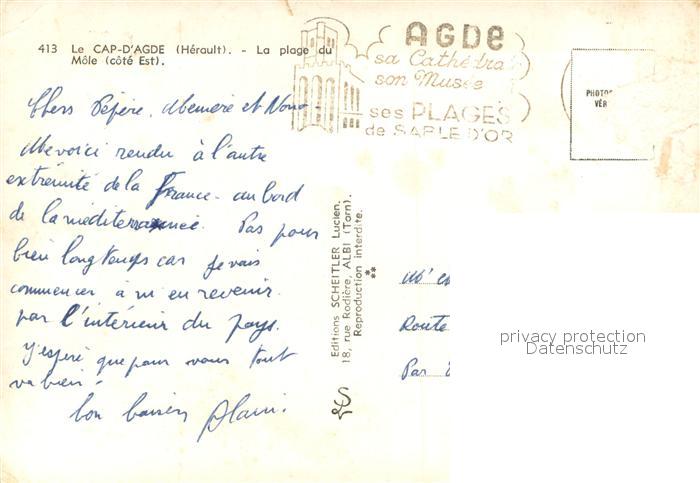 413 Le CAP-D'AGDE (Hérault). - La plage du
Môle (côté Est).
AGDE
sa Cathédra
son Musée
ses PLAGES
de SABLE D'OR
PHOTO
VÉR
Chers Pépère, Memère et Nono
Me voici rendu à l'autre
extrémité de la France au bord
de la méditerranée. Pas pour
bien longtemps car je vais
commencer à m'en revenir
par l'intérieur du pays.
J'espère que pour vous tout
va bien.
bon baisers Alain.
Editions SCHEITLER Lucien,
18, rue Rodière, ALBI (Tarn).
Reproduction interdite.
M'
Route
Par
privacy protection
Datenschutz